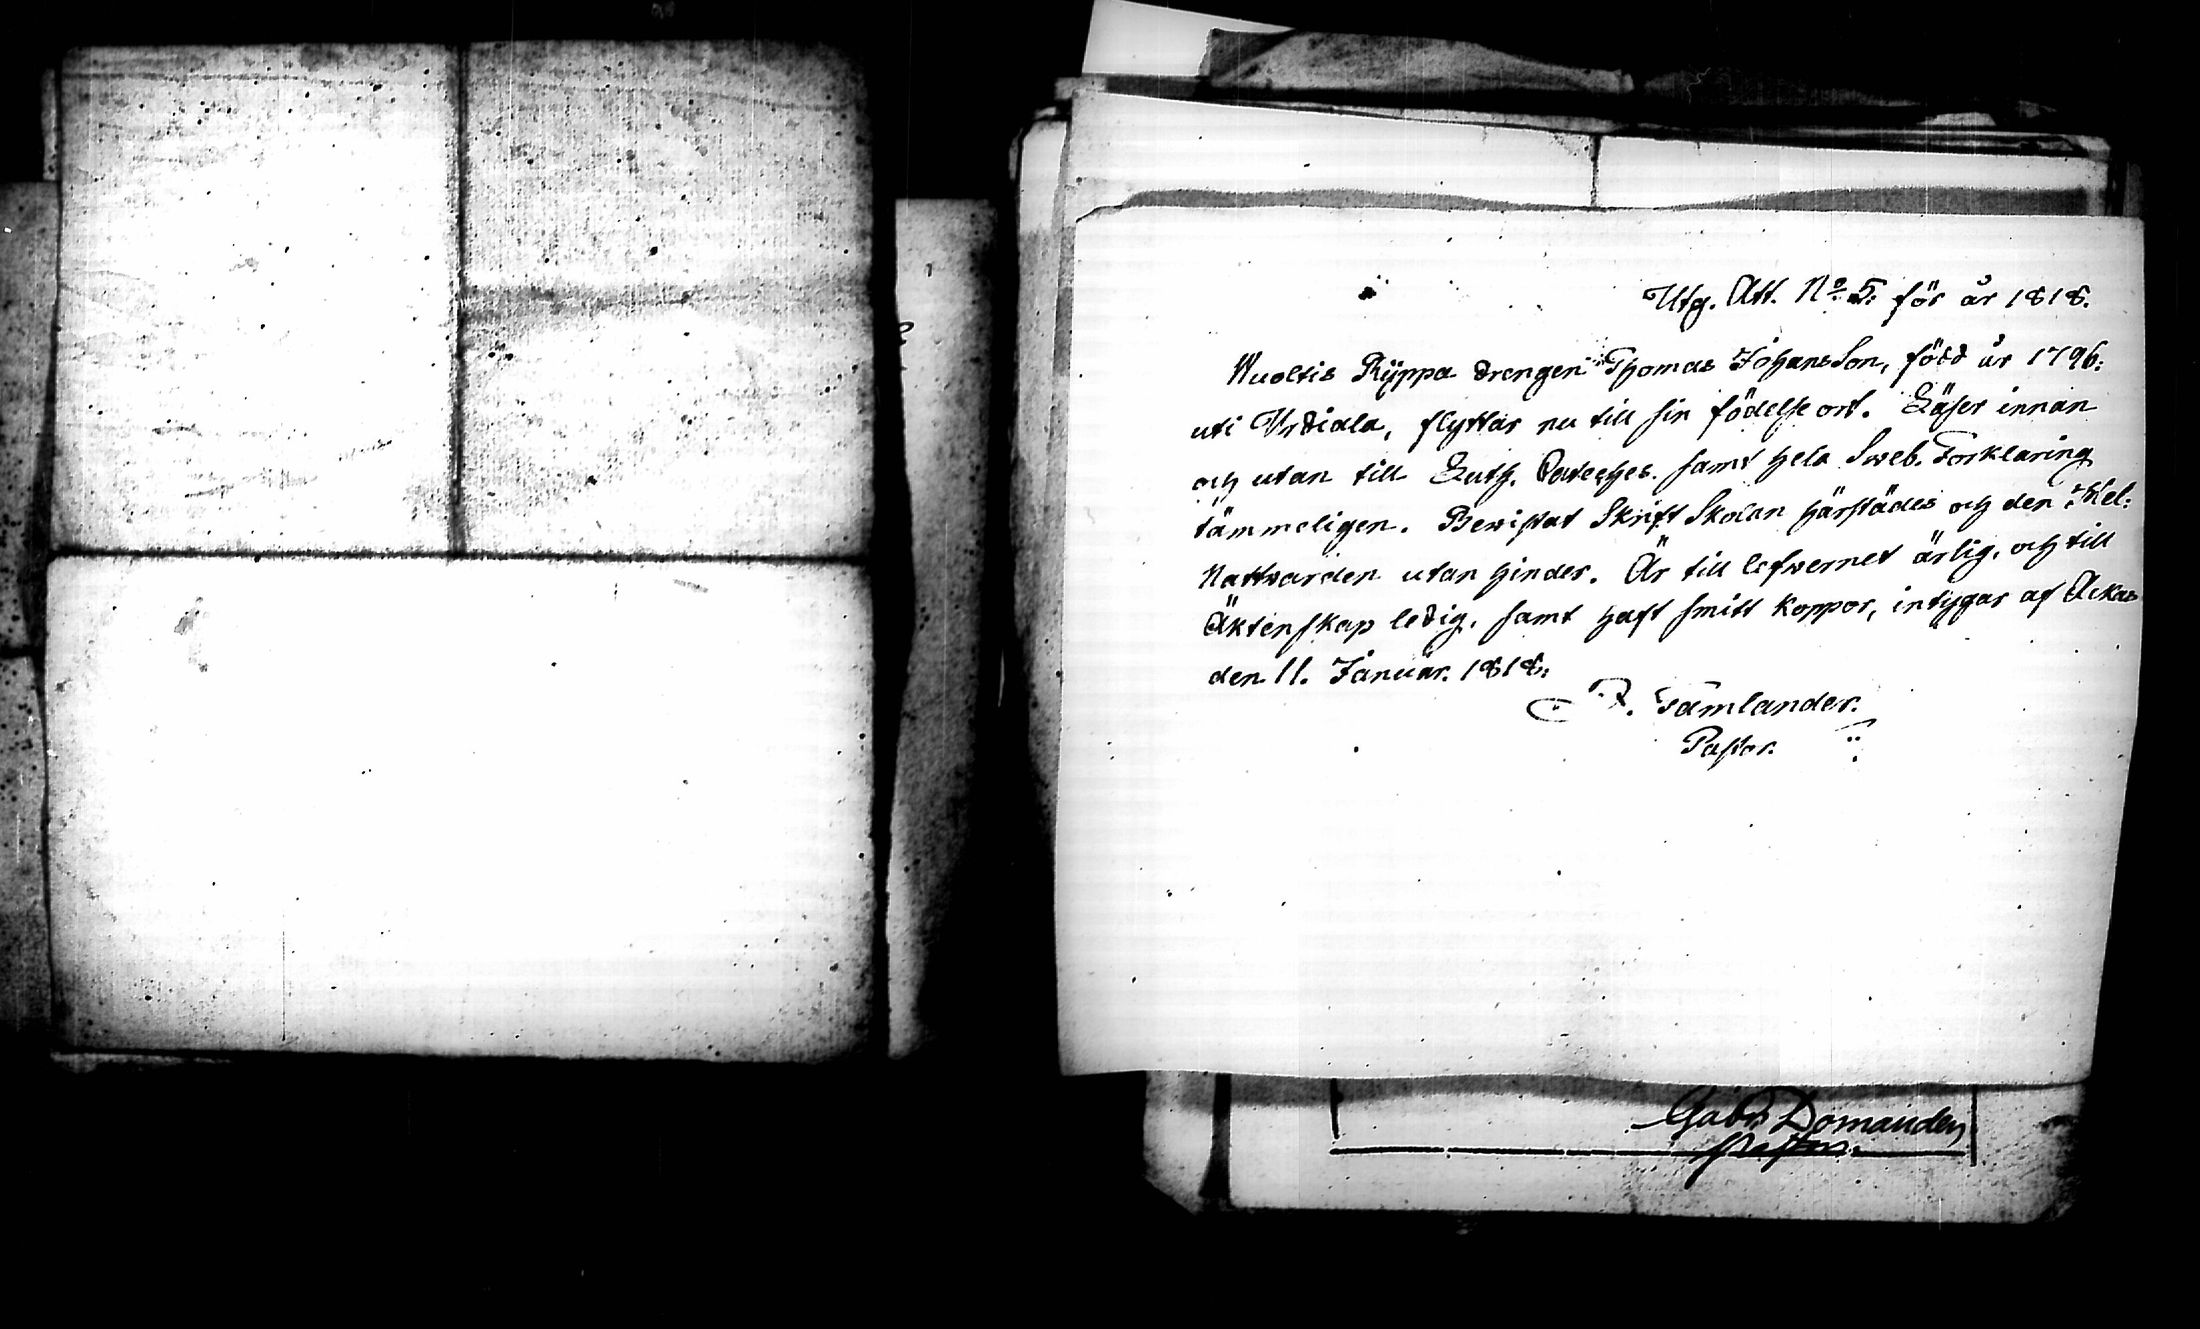 Utg. Att. No 5. för år 1818.
Wuoltis Ryppa drengen Thomas JohansSon, född år 1796.
uti Urdiala, flyttar nu till sin födelse ort. Läser innan
och utan till Luth. Cateches. samt hela Sweb. Förklaring
tämmeligen. Bewistat Skrift Skolan härstädes och den Hel.
Nattvarden utan hinder. Är till lefwernet ärlig, och till
Äktenskap ledig, samt haft smitt koppor, intygar af Ackas
den 11. Januar. 1818.
Tamlander.
Pastor.
Gabr. Domander
Pastor.